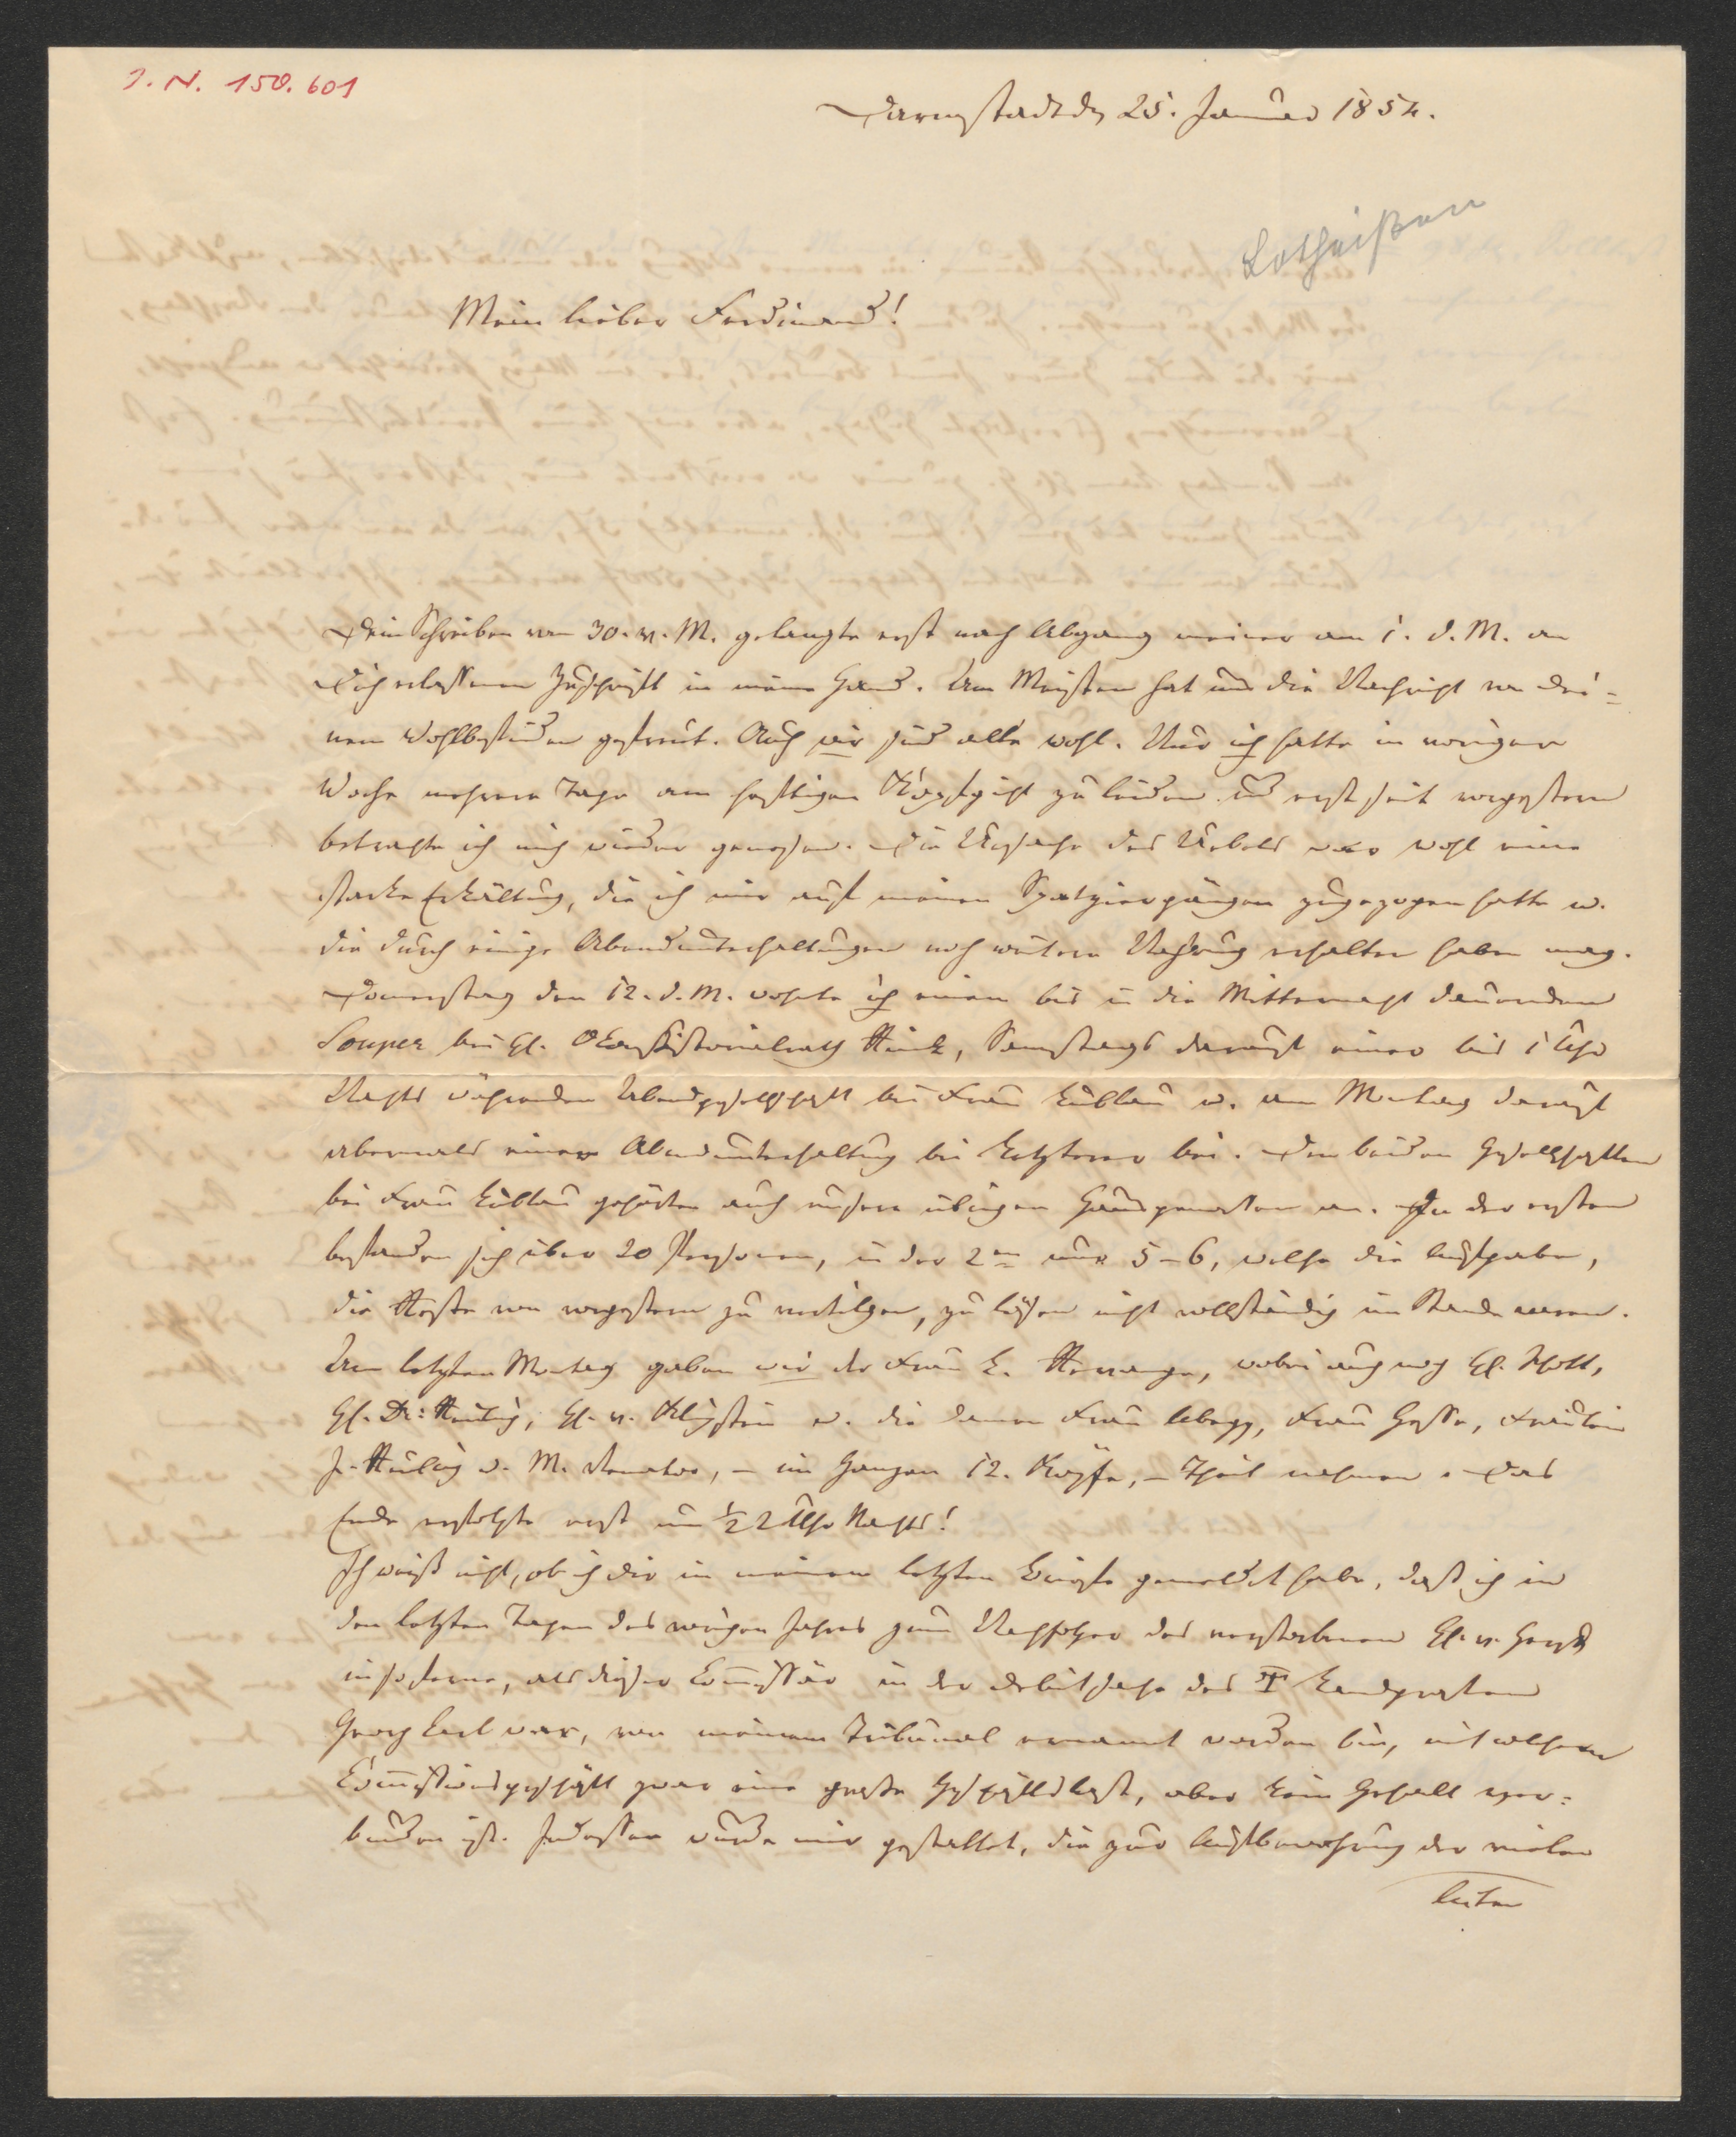 I. N. 158.601
Darmstadt den 25. Januar 1854.
Lotheißen
Mein lieber Ferdinand!
Dein Schreiben vom 30. v. M. gelangte erst nach Abgang meiner am 1. d. M. an
Dich erlassenen Zuschrift in meine Hand. Am Meisten hat uns die Nachricht von Dei=
nem Wohlbefinden gefreut. Auch wir sind alle wohl. Nur ich hatte in voriger
Woche mehrere Tage am heftigen Kopfgicht zu leiden und erst seit vorgestern
betrachte ich mich wieder genesen. Die Ursache des Uebels war wohl eine
starke Erkältung, die ich mir auf meinen Spatziergängen zugezogen hatte u.
die durch einige Abendunterhaltungen noch weitere Nahrung erhalten haben mag.
Donnerstag den 12. d. M. wohnte ich einem bis in die Mitternacht dauernden
Souper bei H. Oconsistorialrath, Samstags darauf einer bis 1 Uhr
Nachts währenden Abendgesellschaft bei Frau u. am Montag darauf
abermals einer Abendunterhaltung bei Letzterer bei. Den beiden Gesellschaften
bei Frau gehörten auch unsere übrigen Hausgenossen an. In der ersten
befanden sich über 20 Personen, in der 2ten nur 5-6, welche die Aufgabe,
die Reste von vorgestern zu vertilgen, zu lösen nicht vollständig im Stande waren.
Am letzten Montag gaben wir der Frau L. Revange, wobei auch noch H.
H. Dr. H. v. u. die Damen Frau Frau Hesse, Fräulein
J. u. M. – im Ganzen 12. Köpfe, – Theil nahmen. Das
Ende erfolgte erst um ½ 2 Uhr Nachts!
Ich weiß nicht, ob ich Dir in meinem letzten Briefe gemeldet habe, daß ich in
den letzten Tagen des vorigen Jahres zum Nachfolger des verstorbenen H. v.
insoferne, als dieser Commissär in der Debitsache des Landgrafen
Georg Carl war, von meinem Tribunal ernannt worden bin, mit welchem
Commissionsgeschäft zwar eine große Geschäftslast, aber kein Gehalt ver=
bunden ist. Indessen wurde mir gestattet, die zur Aufbewahrung der vielen
Acten